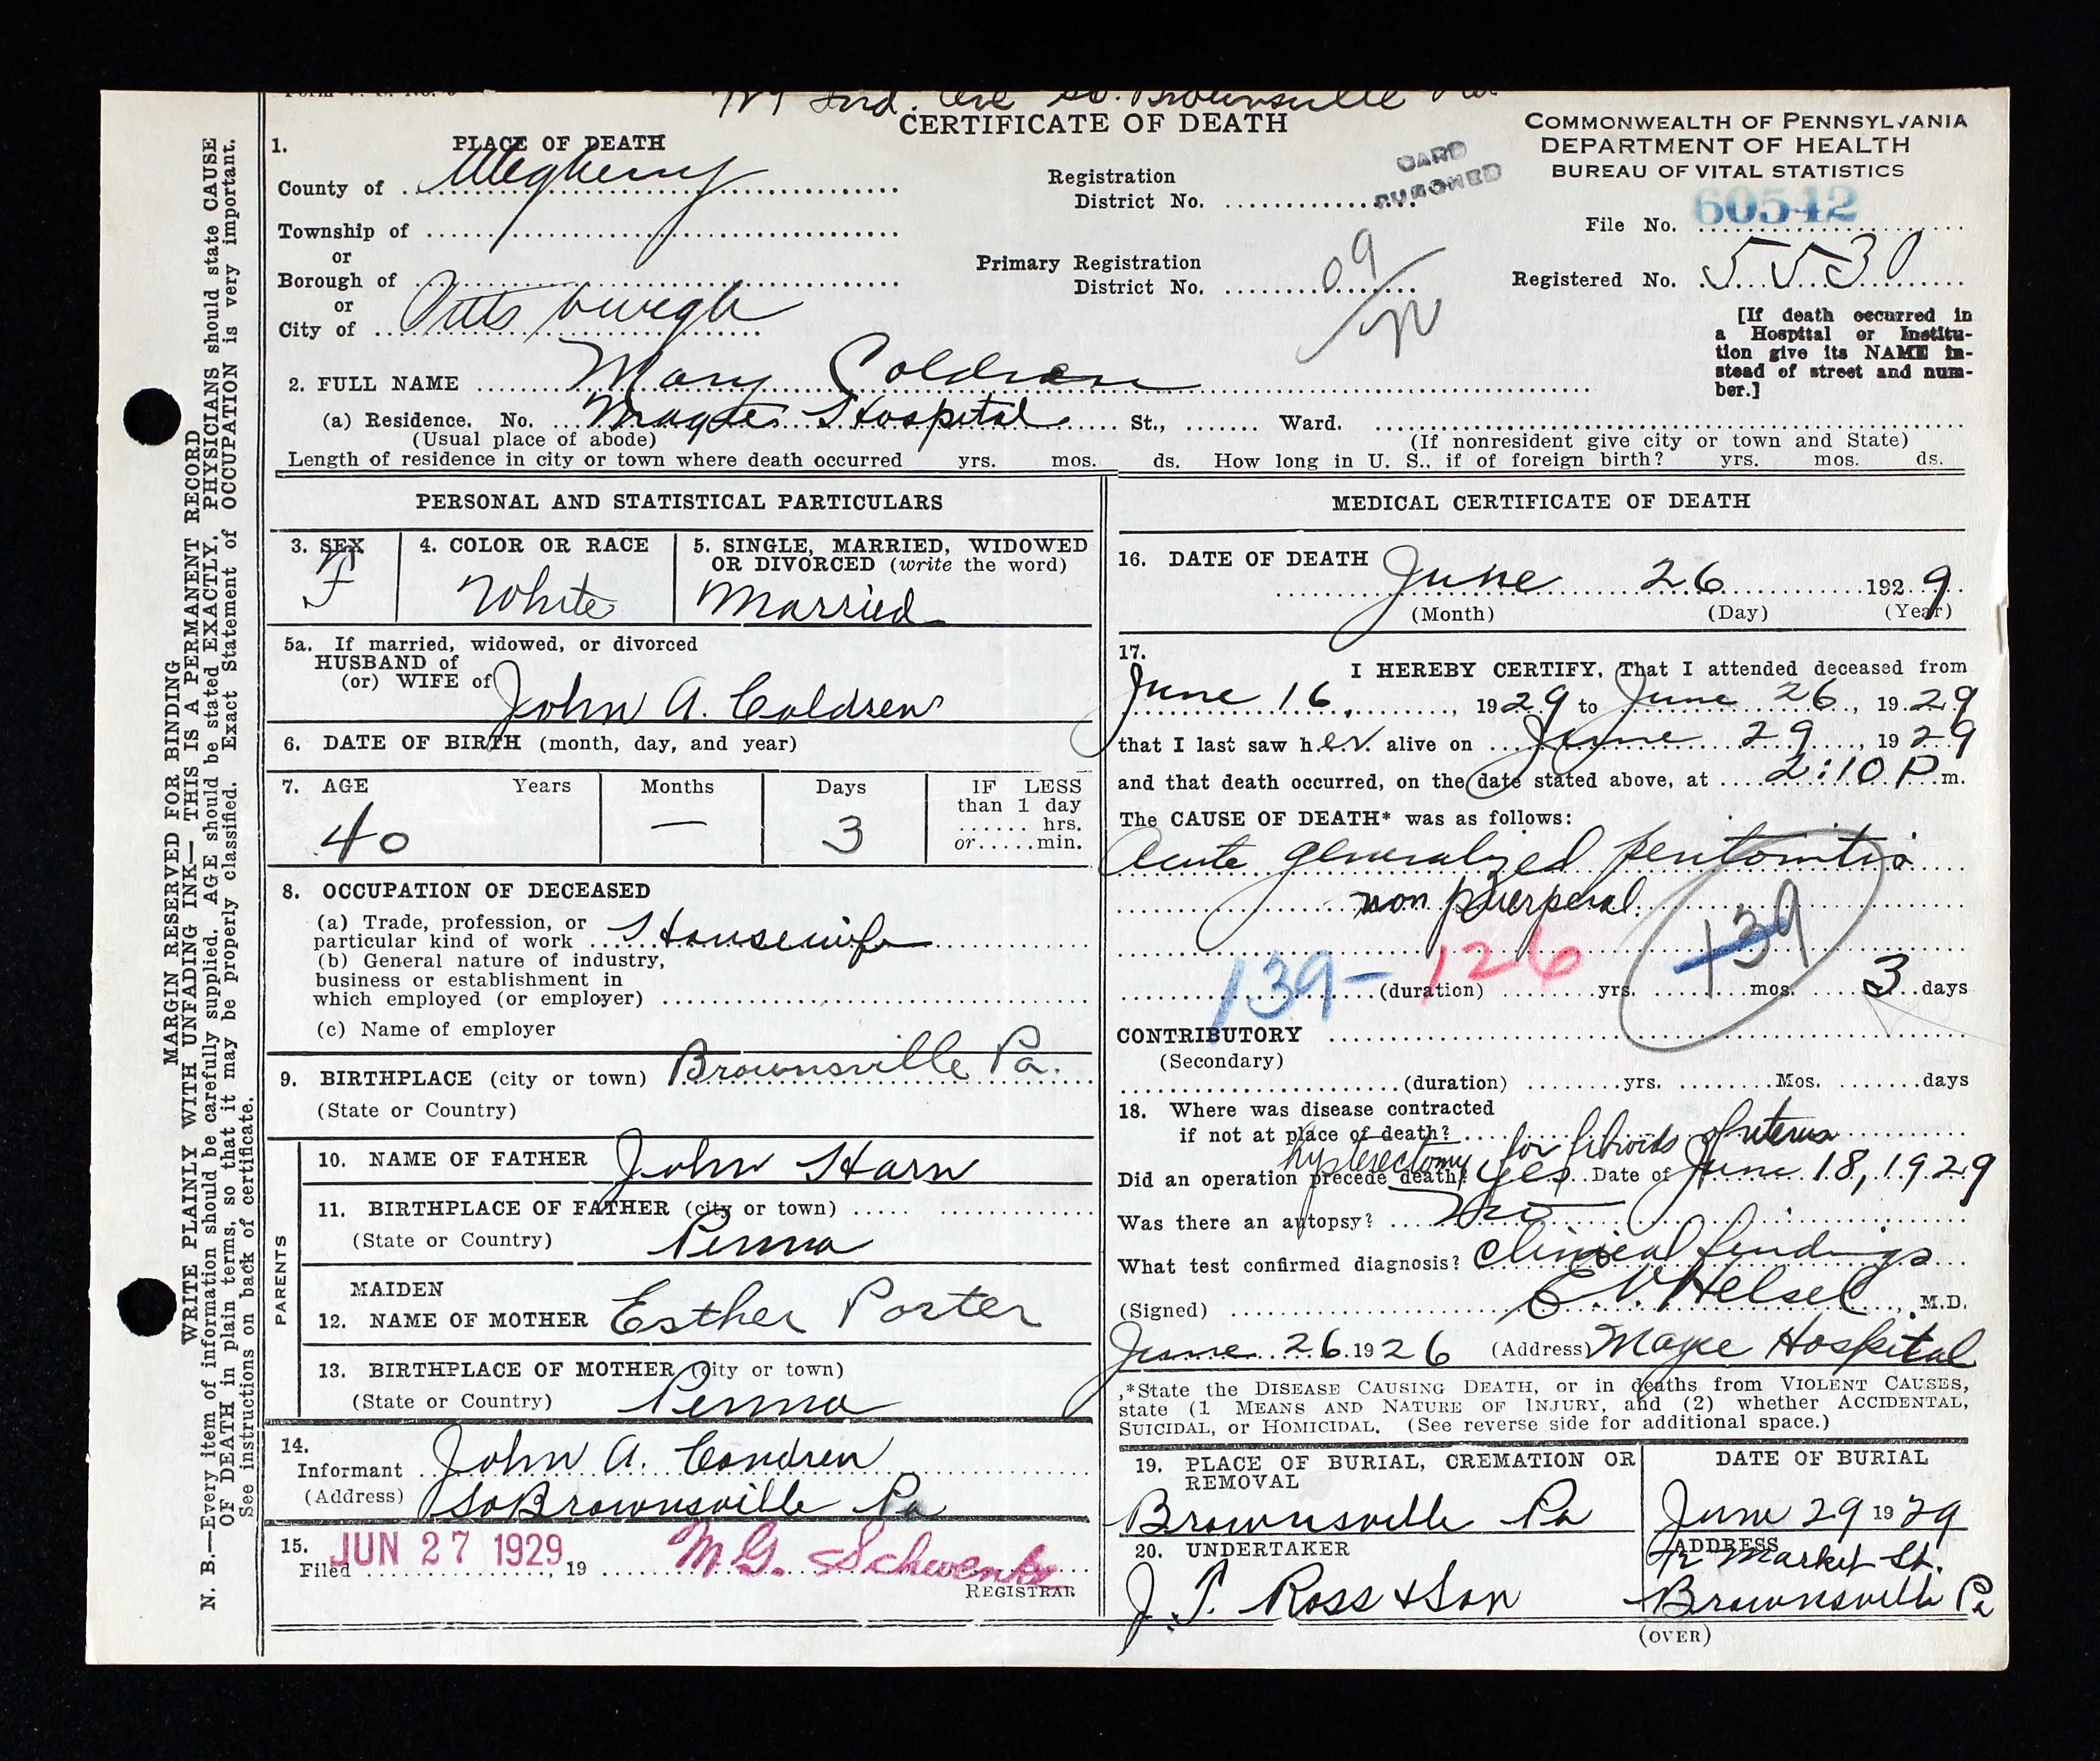 Ind. Ave So. Brownsville Pa
CERTIFICATE OF DEATH
COMMONWEALTH OF PENNSYLVANIA
DEPARTMENT OF HEALTH
BUREAU OF VITAL STATISTICS
1. PLACE OF DEATH
County of Allegheny
Township of
or
Borough of
or
City of Pittsburgh
Registration
District No.
CARD
PUNCHED
Primary Registration
District No. 09
File No. 60542
Registered No. 5530
[If death occurred in
a Hospital or Institu-
tion give its NAME in-
stead of street and num-
ber.]
2. FULL NAME Mary Coldren
(a) Residence. No. Magee Hospital St., Ward.
(Usual place of abode) (If nonresident give city or town and State)
Length of residence in city or town where death occurred yrs. mos. ds. How long in U. S., if of foreign birth? yrs. mos. ds.
PERSONAL AND STATISTICAL PARTICULARS
3. SEX
F
4. COLOR OR RACE
White
5. SINGLE, MARRIED, WIDOWED
OR DIVORCED (write the word)
Married
5a. If married, widowed, or divorced
HUSBAND of
(or) WIFE of John A. Coldren
6. DATE OF BIRTH (month, day, and year)
7. AGE Years Months Days IF LESS
than 1 day
hrs.
or min.
40 — 3
8. OCCUPATION OF DECEASED
(a) Trade, profession, or
particular kind of work Housewife
(b) General nature of industry,
business or establishment in
which employed (or employer)
(c) Name of employer
9. BIRTHPLACE (city or town) Brownsville Pa.
(State or Country)
PARENTS
10. NAME OF FATHER John Harn
11. BIRTHPLACE OF FATHER (city or town)
(State or Country) Penna
MAIDEN
12. NAME OF MOTHER Esther Porter
13. BIRTHPLACE OF MOTHER (city or town)
(State or Country) Penna
14.
Informant John A. Condren
(Address) So Brownsville Pa
15.
Filed JUN 27 1929, 19 M. G. Schwenk
REGISTRAR
MEDICAL CERTIFICATE OF DEATH
16. DATE OF DEATH June 26 1929
(Month) (Day) (Year)
17.
I HEREBY CERTIFY, That I attended deceased from
June 16, 1929 to June 26, 1929
that I last saw her alive on June 29, 1929
and that death occurred, on the date stated above, at 2:10 P m.
The CAUSE OF DEATH* was as follows:
Acute generalized peritonitis
non puerperal.
139- 126 139
(duration) yrs. mos. 3 days
CONTRIBUTORY
(Secondary)
(duration) yrs. Mos. days
18. Where was disease contracted
if not at place of death?
hysterectomy for fibroids of uterus
Did an operation precede death? yes Date of June 18, 1929
Was there an autopsy? No
What test confirmed diagnosis? Clinical findings
(Signed) E. V. Helsel, M.D.
June 26, 1926 (Address) Magee Hospital
*State the DISEASE CAUSING DEATH, or in deaths from VIOLENT CAUSES,
state (1 MEANS AND NATURE OF INJURY, and (2) whether ACCIDENTAL,
SUICIDAL, or HOMICIDAL. (See reverse side for additional space.)
19. PLACE OF BURIAL, CREMATION OR
REMOVAL
Brownsville Pa
DATE OF BURIAL
June 29 1929
20. UNDERTAKER
J. T. Ross & Son
ADDRESS
Market St.
Brownsville Pa
(OVER)
MARGIN RESERVED FOR BINDING
WRITE PLAINLY WITH UNFADING INK— THIS IS A PERMANENT RECORD
N. B.—Every item of information should be carefully supplied. AGE should be stated EXACTLY. PHYSICIANS should state CAUSE
OF DEATH in plain terms, so that it may be properly classified. Exact Statement of OCCUPATION is very important.
See instructions on back of certificate.